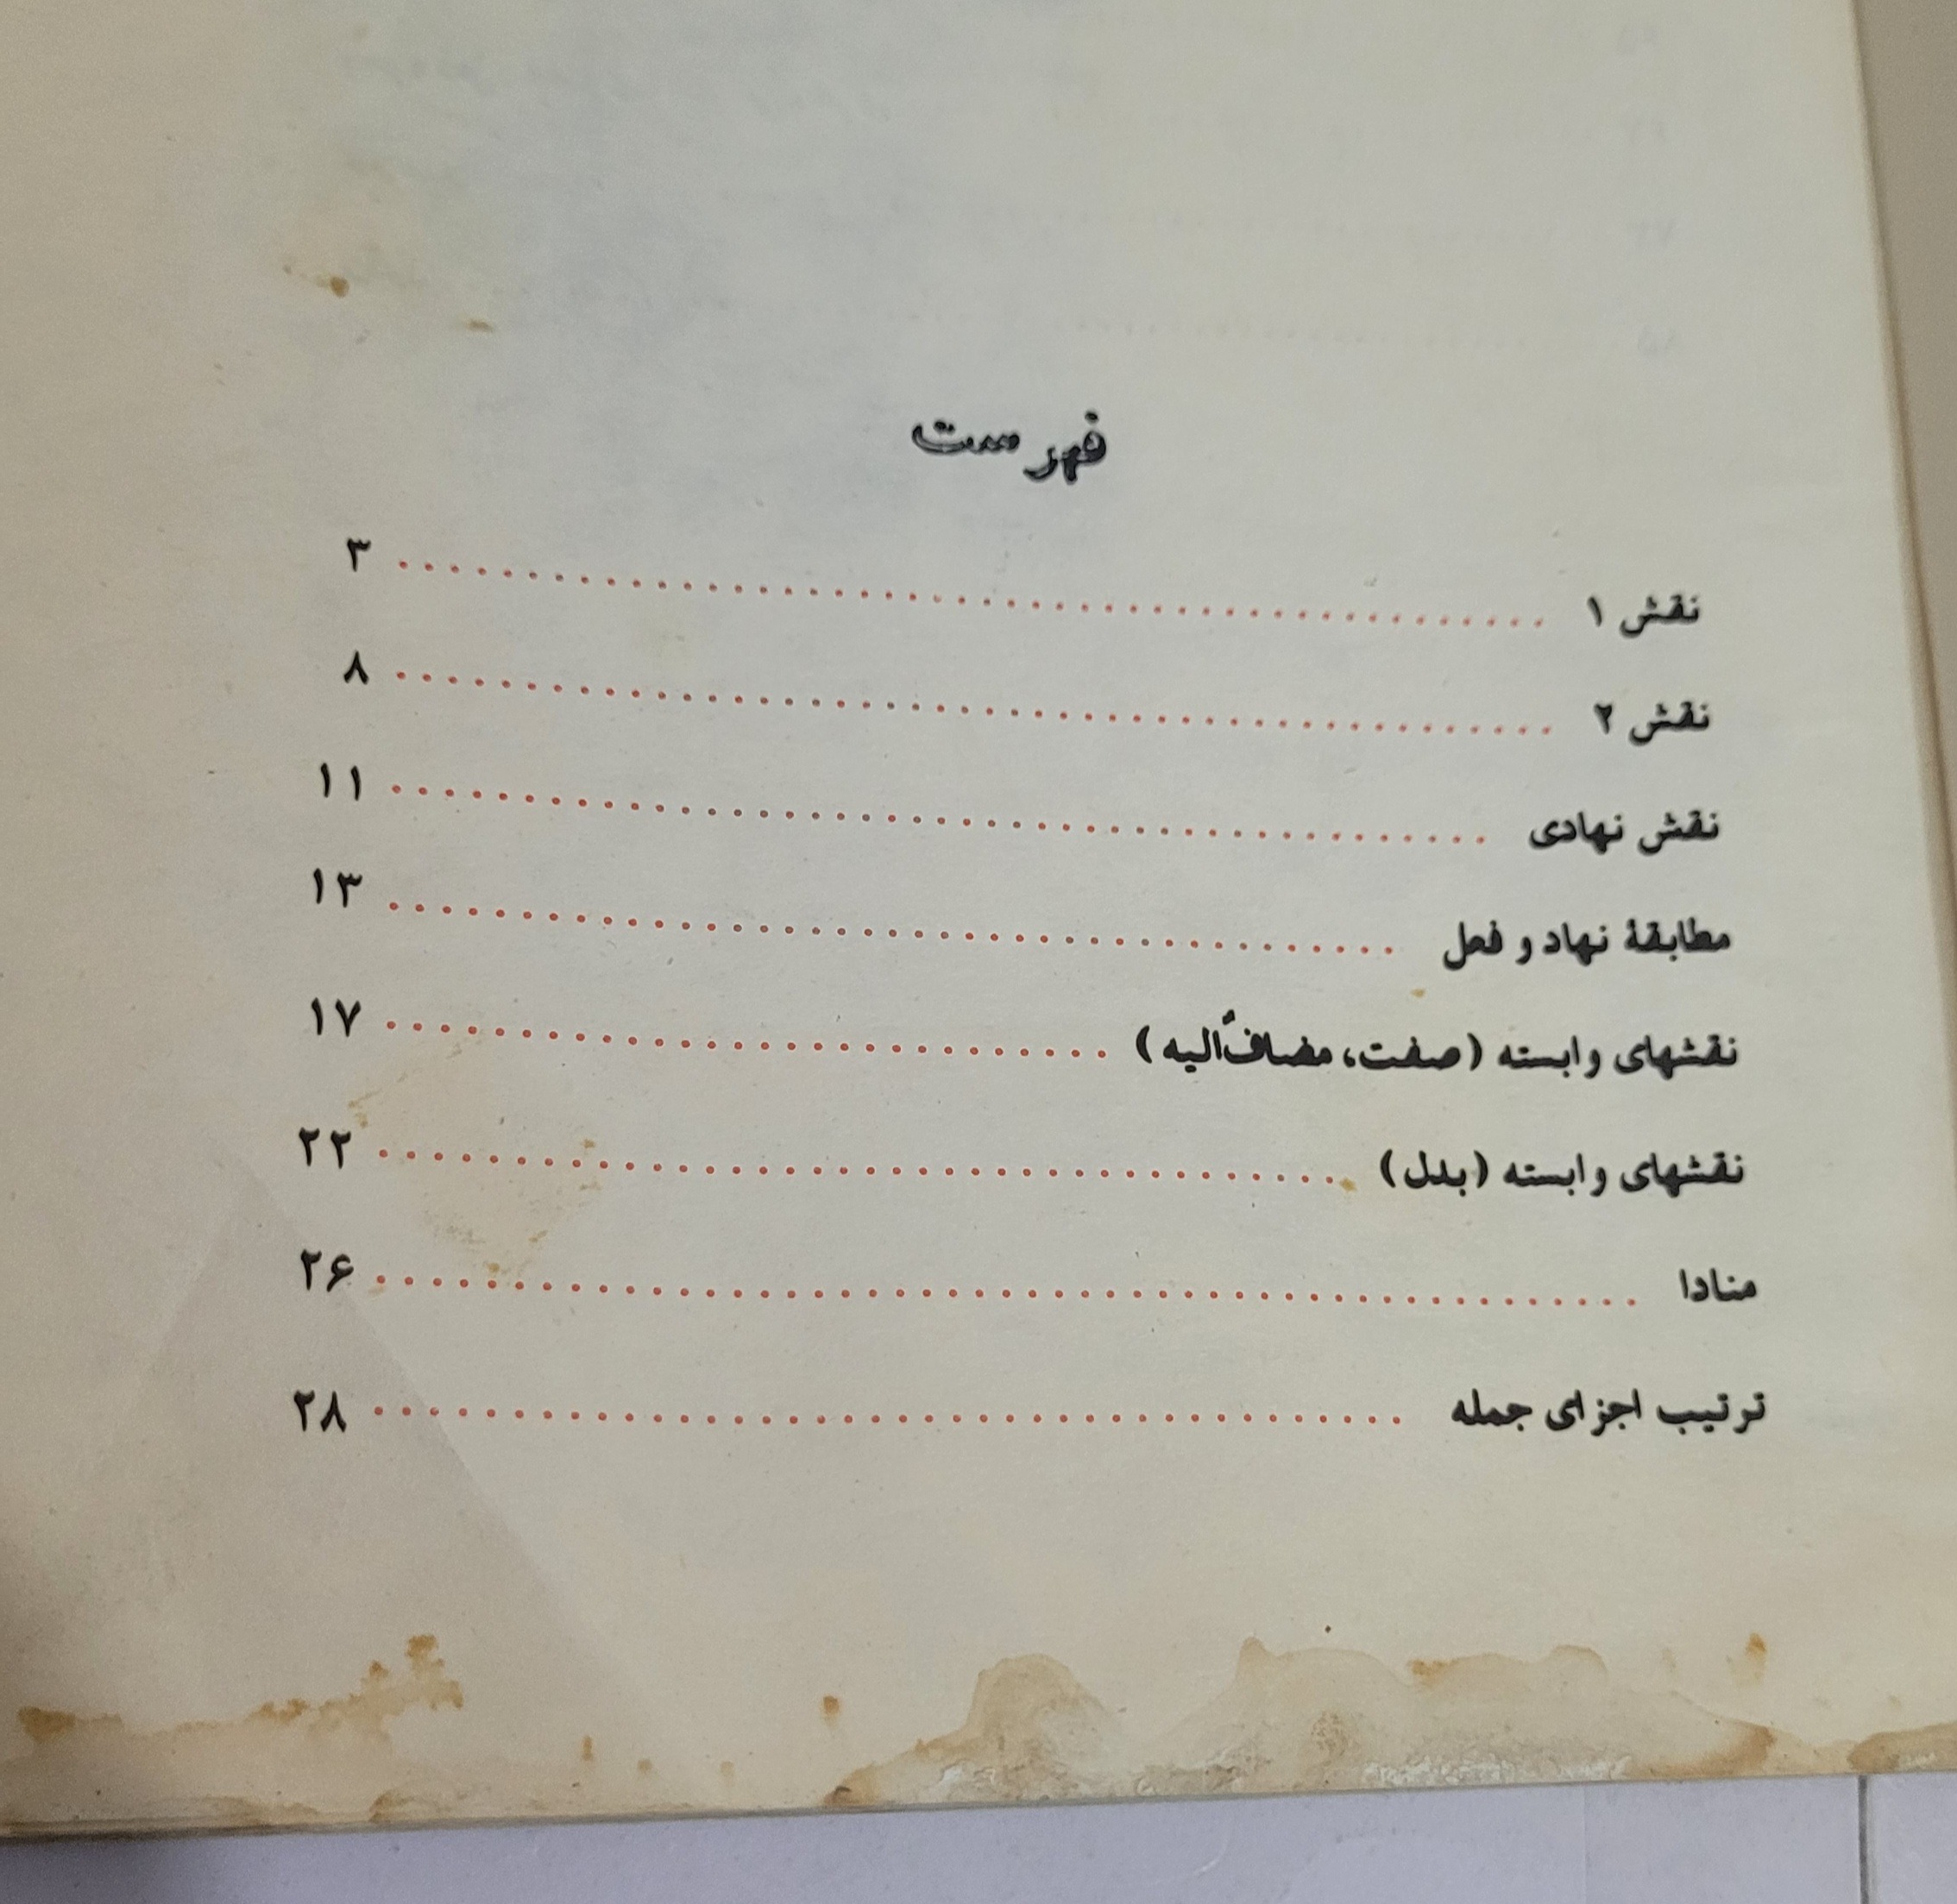 فهرست
نقش ۱ ........................................ ۳
نقش ۲ ........................................ ۸
نقش نهادی ........................................ ۱۱
مطابقهٔ نهاد و فعل ........................................ ۱۳
نقشهای وابسته (صفت، مضافٌ‌الیه) ............................ ۱۷
نقشهای وابسته (بدل) .................................... ۲۲
منادا ................................................ ۲۶
ترتیب اجزای جمله ...................................... ۲۸